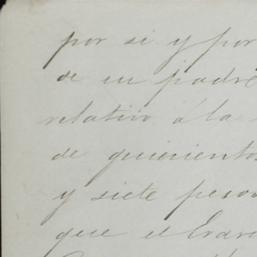 por si y por
de su padre
relativo á la
de quinientos
y siete pesos
que el Erar